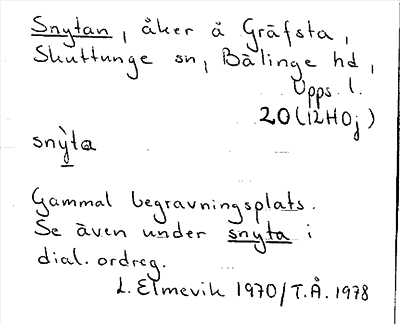 Snytan, åker å Gräfsta,
Skuttunge sn, Bälinge hd,
Upps. l.
20 (12H0j)
snỳta
Gammal begravningsplats.
Se även under snyta i
dial. ordreg.
L. Elmevik 1970/T.Å. 1978